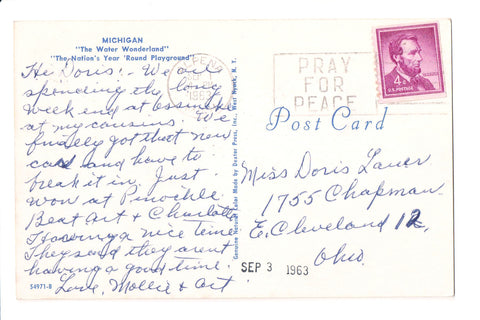 MICHIGAN
"The Water Wonderland"
"The Nation's Year 'Round Playground"
Hi Doris:- We are
spending the long
week end at
at my cousins. We
finally got that new
car and have to
break it in. Just
won at Pinochle
Beat Art & Charlotte
Having a nice time
They said they arent
having a good time.
Love, Mollie & Art
54971-B
Genuine Natural Color Made by Dexter Press, Inc., West Nyack, N. Y.
PRAY
FOR
PEACE
4¢
U.S. POSTAGE
Post Card
Miss Doris Lauer
1755 Chapman
E. Cleveland 12,
Ohio
SEP 3 1963